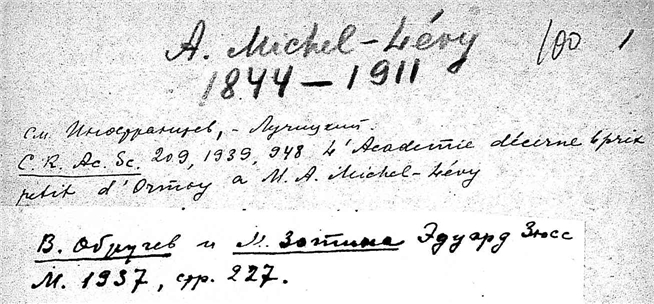 A. Michel-Lévy 100 1
1844-1911
см. Иностранцев, - Лучицкий.
C. R. Ac. Sc. 209, 1939, 948 L'Academie décerne le prix
petit d'Ormoy a M. A. Michel-Lévy
В. Обручев и М. Зотина Эдуард Зюсс
М. 1937, стр. 227.